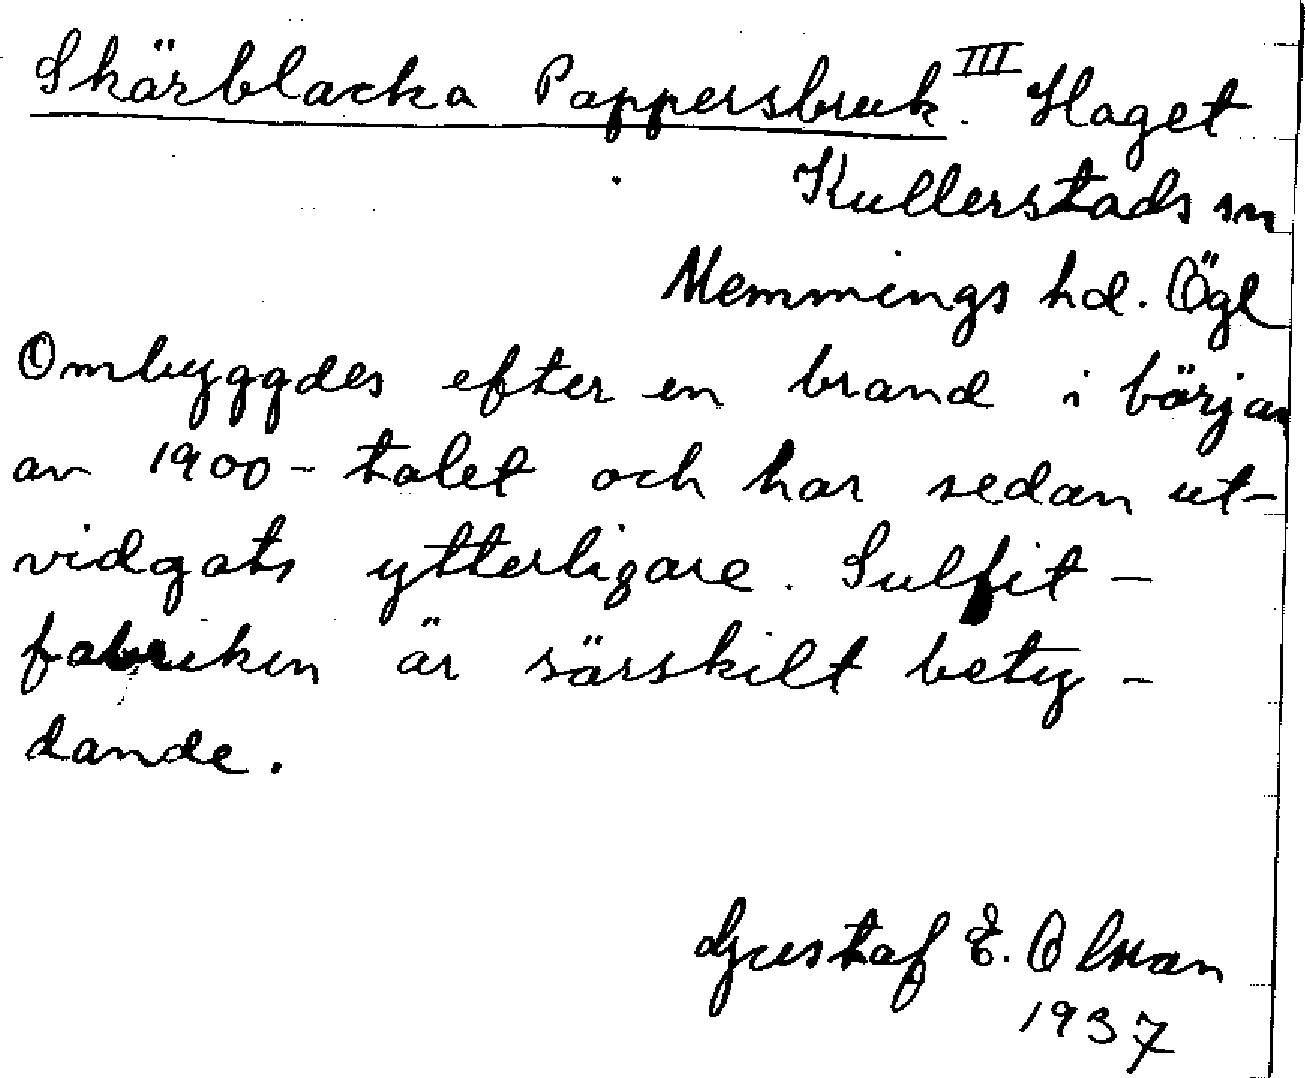 Skärblacka Pappersbruk. III Haget
Kullerstads sn
Memmings hd. Ögl
Ombyggdes efter en brand i början
av 1900-talet och har sedan ut-
vidgats ytterligare. Sulfit-
fabriken är särskilt bety-
dande.
Gustaf E. Olman
1937